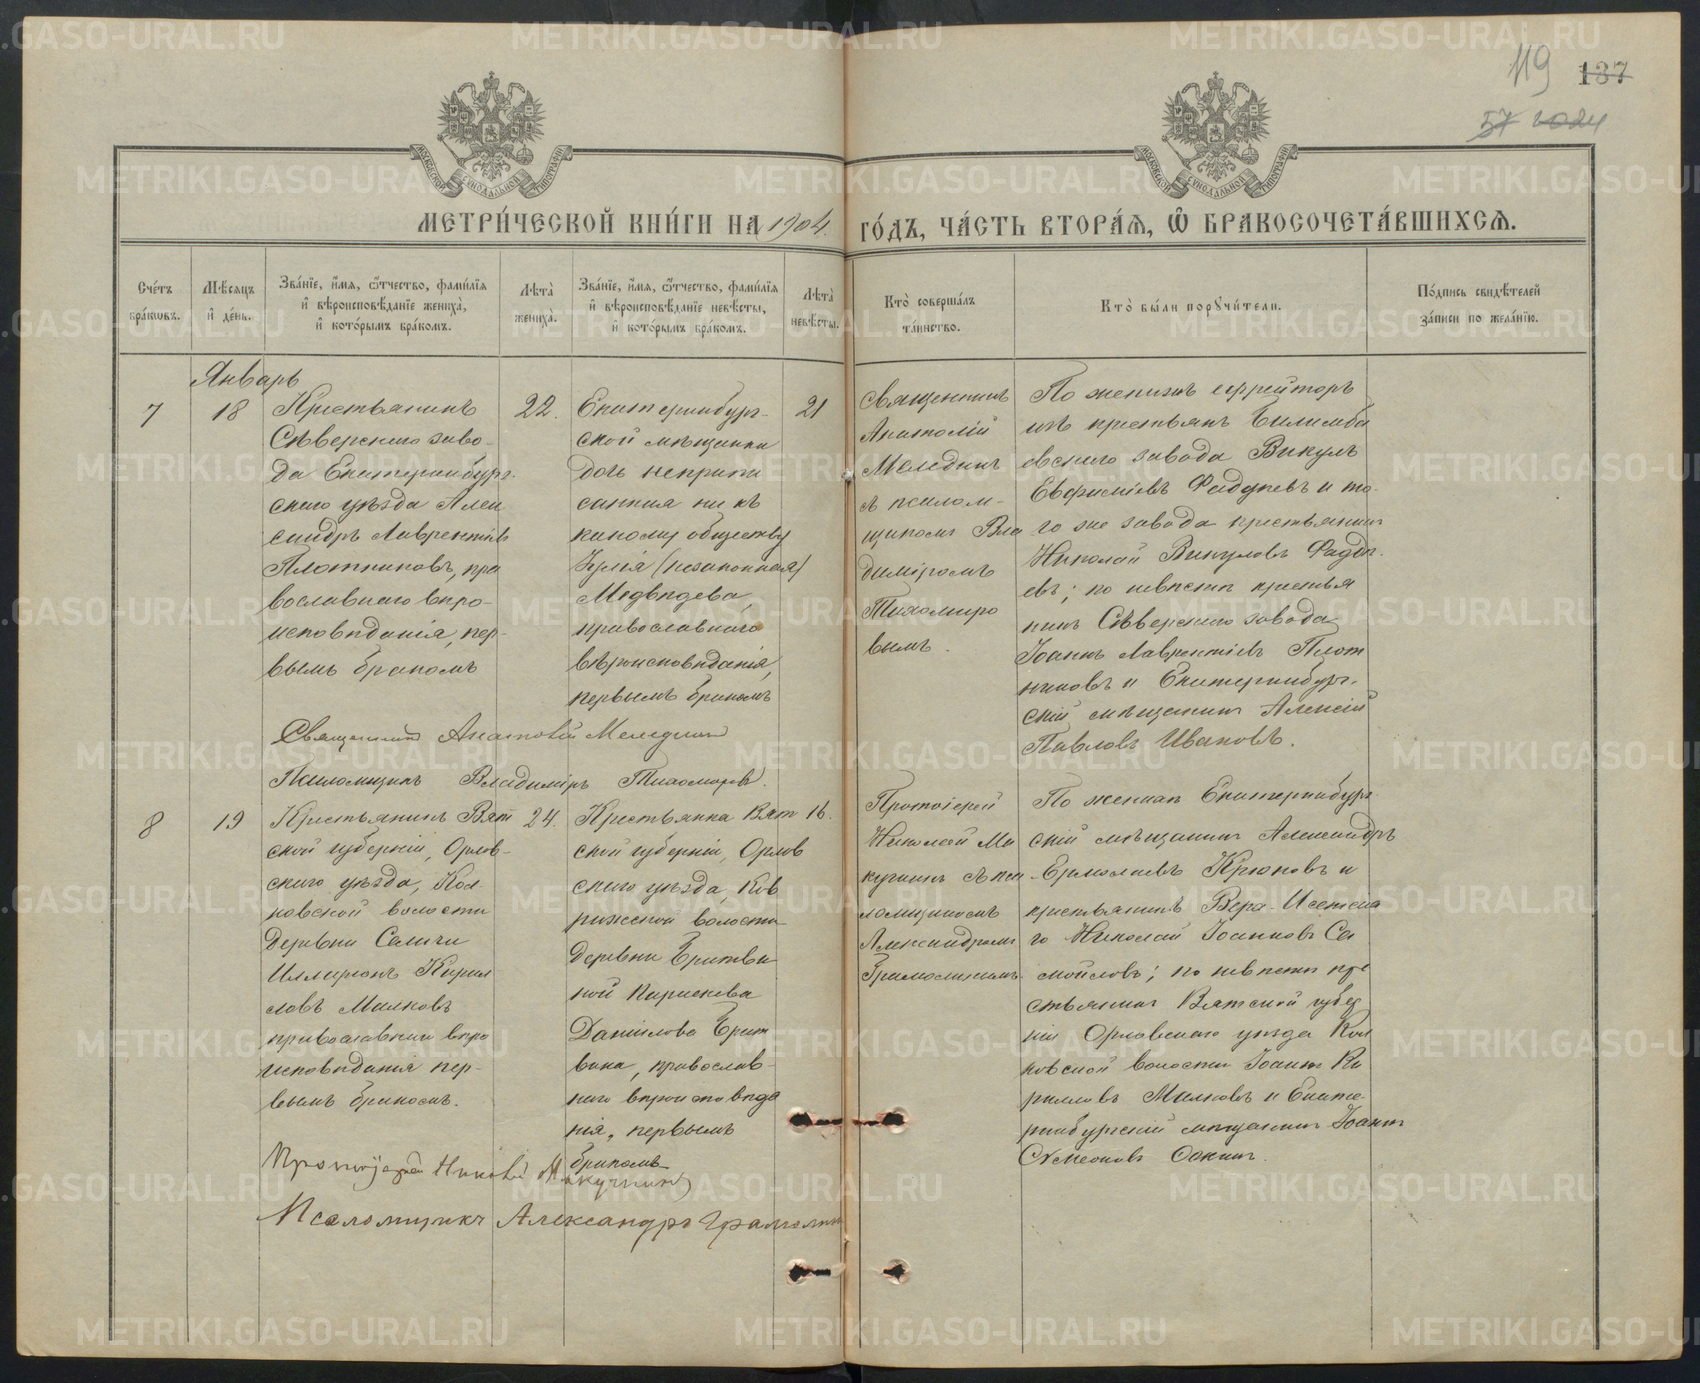 119 137
57 2024
МЕТРИ́ЧЕСКОЙ КНИ́ГИ НА 1904 ГО́ДЪ, ЧА́СТЬ ВТОРА́Ѧ, Ѽ БРАКОСОЧЕТА́ВШИХСѦ.
Сче́тъ бра́кѡвъ.
Мѣ́сяцъ и҆ де́нь.
Зва́нїе, и҆́мѧ, ѻ҆́тчество, фами́лїѧ и҆ вѣроисповѣ́данїе жениха̀, и҆ кото́рымъ бра́комъ.
Лѣта̀ жениха̀.
Зва́нїе, и҆́мѧ, ѻ҆́тчество, фами́лїѧ и҆ вѣроисповѣ́данїе невѣ́сты, и҆ кото́рымъ бра́комъ.
Лѣта̀ невѣ́сты.
Кто̀ соверша́лъ та́инство.
Кто̀ бы́ли порꙋчи́тели.
По́дпись свидѣ́телей за́писи по жела́нїю.
Январь
7
18
Крестьянинъ
Сѣверскаго заво-
да Екатеринбург-
скаго уѣзда Алек
сандръ Лаврентіевъ
Плотниковъ, пра
вославнаго вѣро-
исповѣданія, пер-
вымъ бракомъ
22.
Екатеринбург-
ской мѣщанки
дочь неприпи
санная ни къ
какому обществу
Юлія (незаконная)
Медвѣдева,
православнаго
вѣроисповѣданія,
первымъ бракомъ
21
Священникъ
Анатолій
Мелединъ
съ псалом-
щикомъ Вла
диміромъ
Тихомиро
вымъ.
По женихѣ ефрейторъ
изъ крестьянъ Билимба
евскаго завода Викулъ
Евфиміевъ Фадѣевъ и то
го же завода крестьянинъ
Николай Викуловъ Фадѣ-
евъ; по невѣстѣ крестья
нинъ Сѣверскаго завода
Іоаннъ Лаврентіевъ Плот
никовъ и Екатеринбург-
скій мѣщанинъ Алексій
Павловъ Ивановъ.
Священникъ Анатолій Меледин
Псаломщикъ Владиміръ Тихомировъ.
8
19
Крестьянинъ Вят
ской губерніи, Орлов-
скаго уѣзда, Кол-
ковской волости
деревни Саличи
Илларіонъ Кирил
ловъ Малковъ
православнаго вѣро
исповѣданія пер-
вымъ бракомъ.
24.
Крестьянка Вят
ской губерніи, Орлов
скаго уѣзда, Ков
рижской волости
деревни
Параскева
Даніилова
православ-
наго вѣроисповѣда
нія, первымъ
бракомъ
16.
Протоіерей
Николай Ма
кушинъ съ пса
ломщикомъ
Александромъ
По женихѣ Екатеринбург
скій мѣщанинъ Александръ
Ермолаевъ Крюковъ и
крестьянинъ Верх-Исетска
го Николай Іоанновъ Са
мойловъ; по невѣстѣ кре
стьянинъ Вятской губер
ніи Орловскаго уѣзда Кол
ковской волости Іоаннъ Ки
рилловъ Малковъ и Екате-
ринбургскій мѣщанинъ Іоаннъ
Сѵмеоновъ
Протоіерей Николай Макушинъ
Псаломщикъ Александръ
METRIKI.GASO-URAL.RU